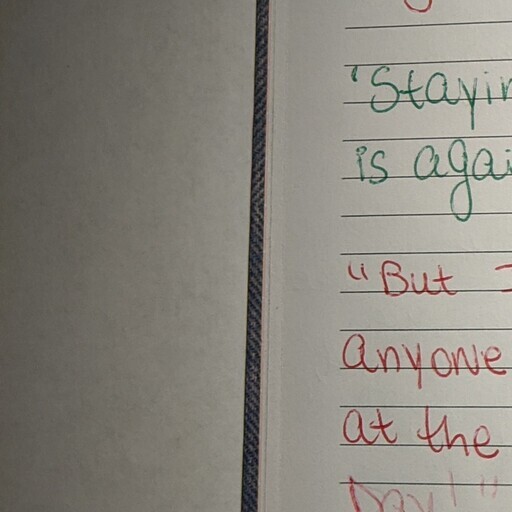 'Stayin
is agai
"But I
anyone
at the
Day!"